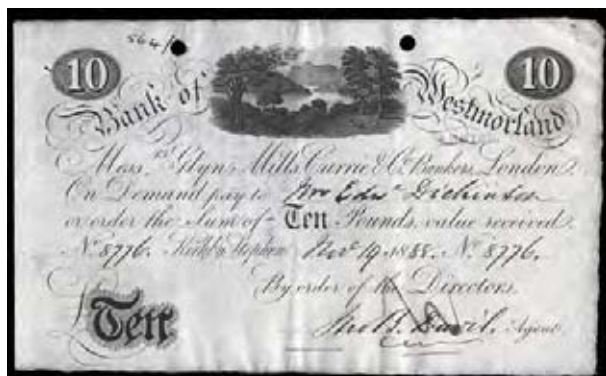 564/
10 10
Bank of Westmorland
Mess.rs Glyn, Mills, Currie & Co. Bankers, London.
On Demand pay to Mr Edwd Dickinson
or order the Sum of Ten Pounds, value received.
No. 8776. Kirkby Stephen Novr 19. 1888. No. 8776.
By order of the Directors.
£Ten Agent.